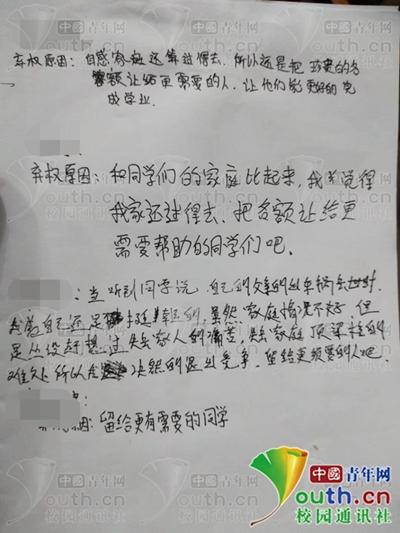 中國青年网
outh.cn
校园通讯社
弃权原因：自感家庭还算过得去，所以还是把珍贵的名
额让给更需要的人，让他们能更好的完
成学业.
弃权原因：和同学们的家庭比起来，我觉得
我家还过得去，把名额让给更
需要帮助的同学们吧.
：当听到同学说，自己的父亲
自己还是挺幸运的，虽然家庭情况不好，但
是从没想过失去家人的痛苦，失去家庭顶梁柱的
难处，所以决然的退出竞争，留给更须要的人吧
原因：留给更有需要的同学
中國青年网
outh.cn
校园通讯社